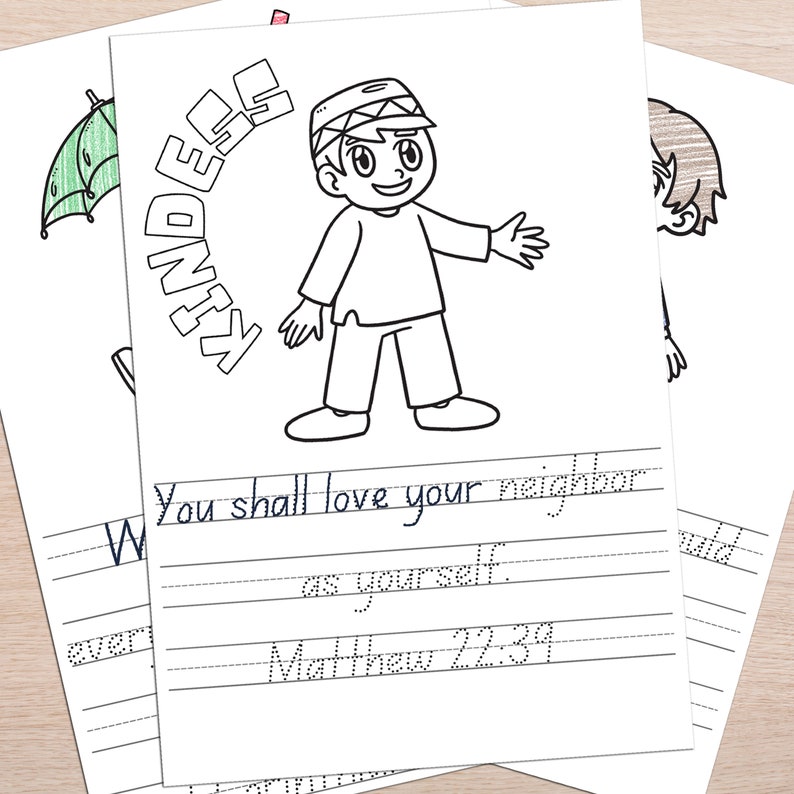 KINDESS
You shall love your neighbor
as yourself.
Matthew 22:39
W
every
uld